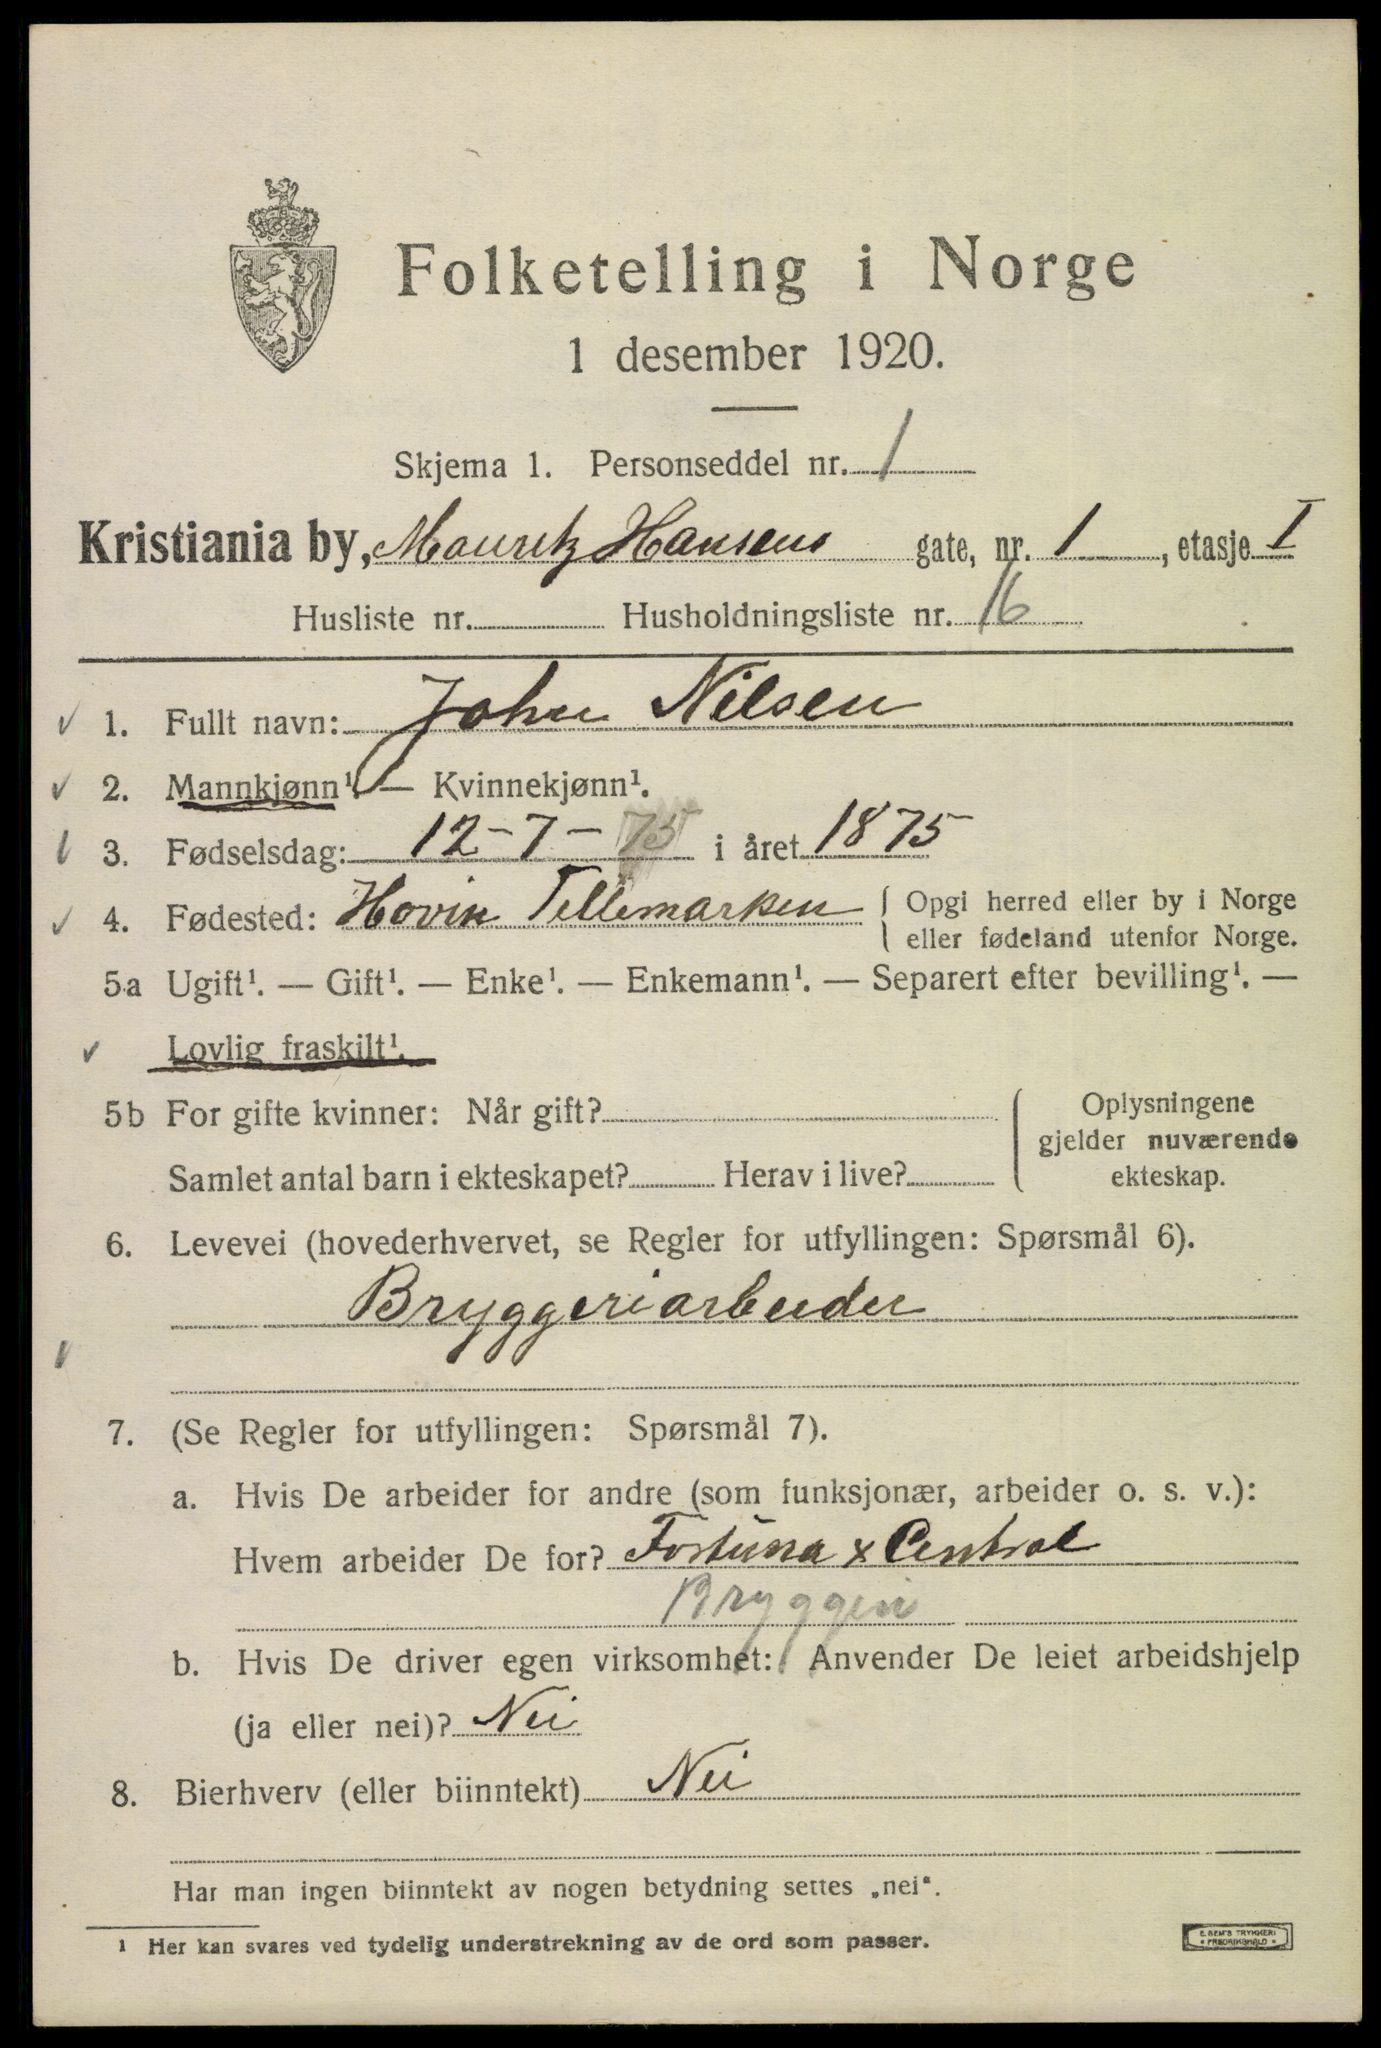 Folketelling i Norge
1 desember 1920.
Skjema 1. Personseddel nr. 1
Kristiania by, Mauritz Hansens gate, nr. 1, etasje I
Husliste nr. Husholdningsliste nr. 16
1. Fullt navn: John Nilsen
2. Mannkjønn¹. — Kvinnekjønn¹.
3. Fødselsdag: 12-7-75 i året 1875
4. Fødested: Hovin Tellemarken { Opgi herred eller by i Norge
eller fødeland utenfor Norge.
5a Ugift¹. — Gift¹. — Enke¹. — Enkemann¹. — Separert efter bevilling¹. —
Lovlig fraskilt¹.
5b For gifte kvinner: Når gift? { Oplysningene
gjelder nuværende
Samlet antal barn i ekteskapet? Herav i live? ekteskap.
6. Levevei (hovederhvervet, se Regler for utfyllingen: Spørsmål 6).
Bryggeriarbeider
7. (Se Regler for utfyllingen: Spørsmål 7).
a. Hvis De arbeider for andre (som funksjonær, arbeider o. s. v.):
Hvem arbeider De for? Fortuna x Central
Bryggeri
b. Hvis De driver egen virksomhet: Anvender De leiet arbeidshjelp
(ja eller nei)? Nei
8. Bierhverv (eller biinntekt) Nei
Har man ingen biinntekt av nogen betydning settes „nei“.
¹ Her kan svares ved tydelig understrekning av de ord som passer.
E. SEM'S TRYKKERI
* FREDRIKSHALD *